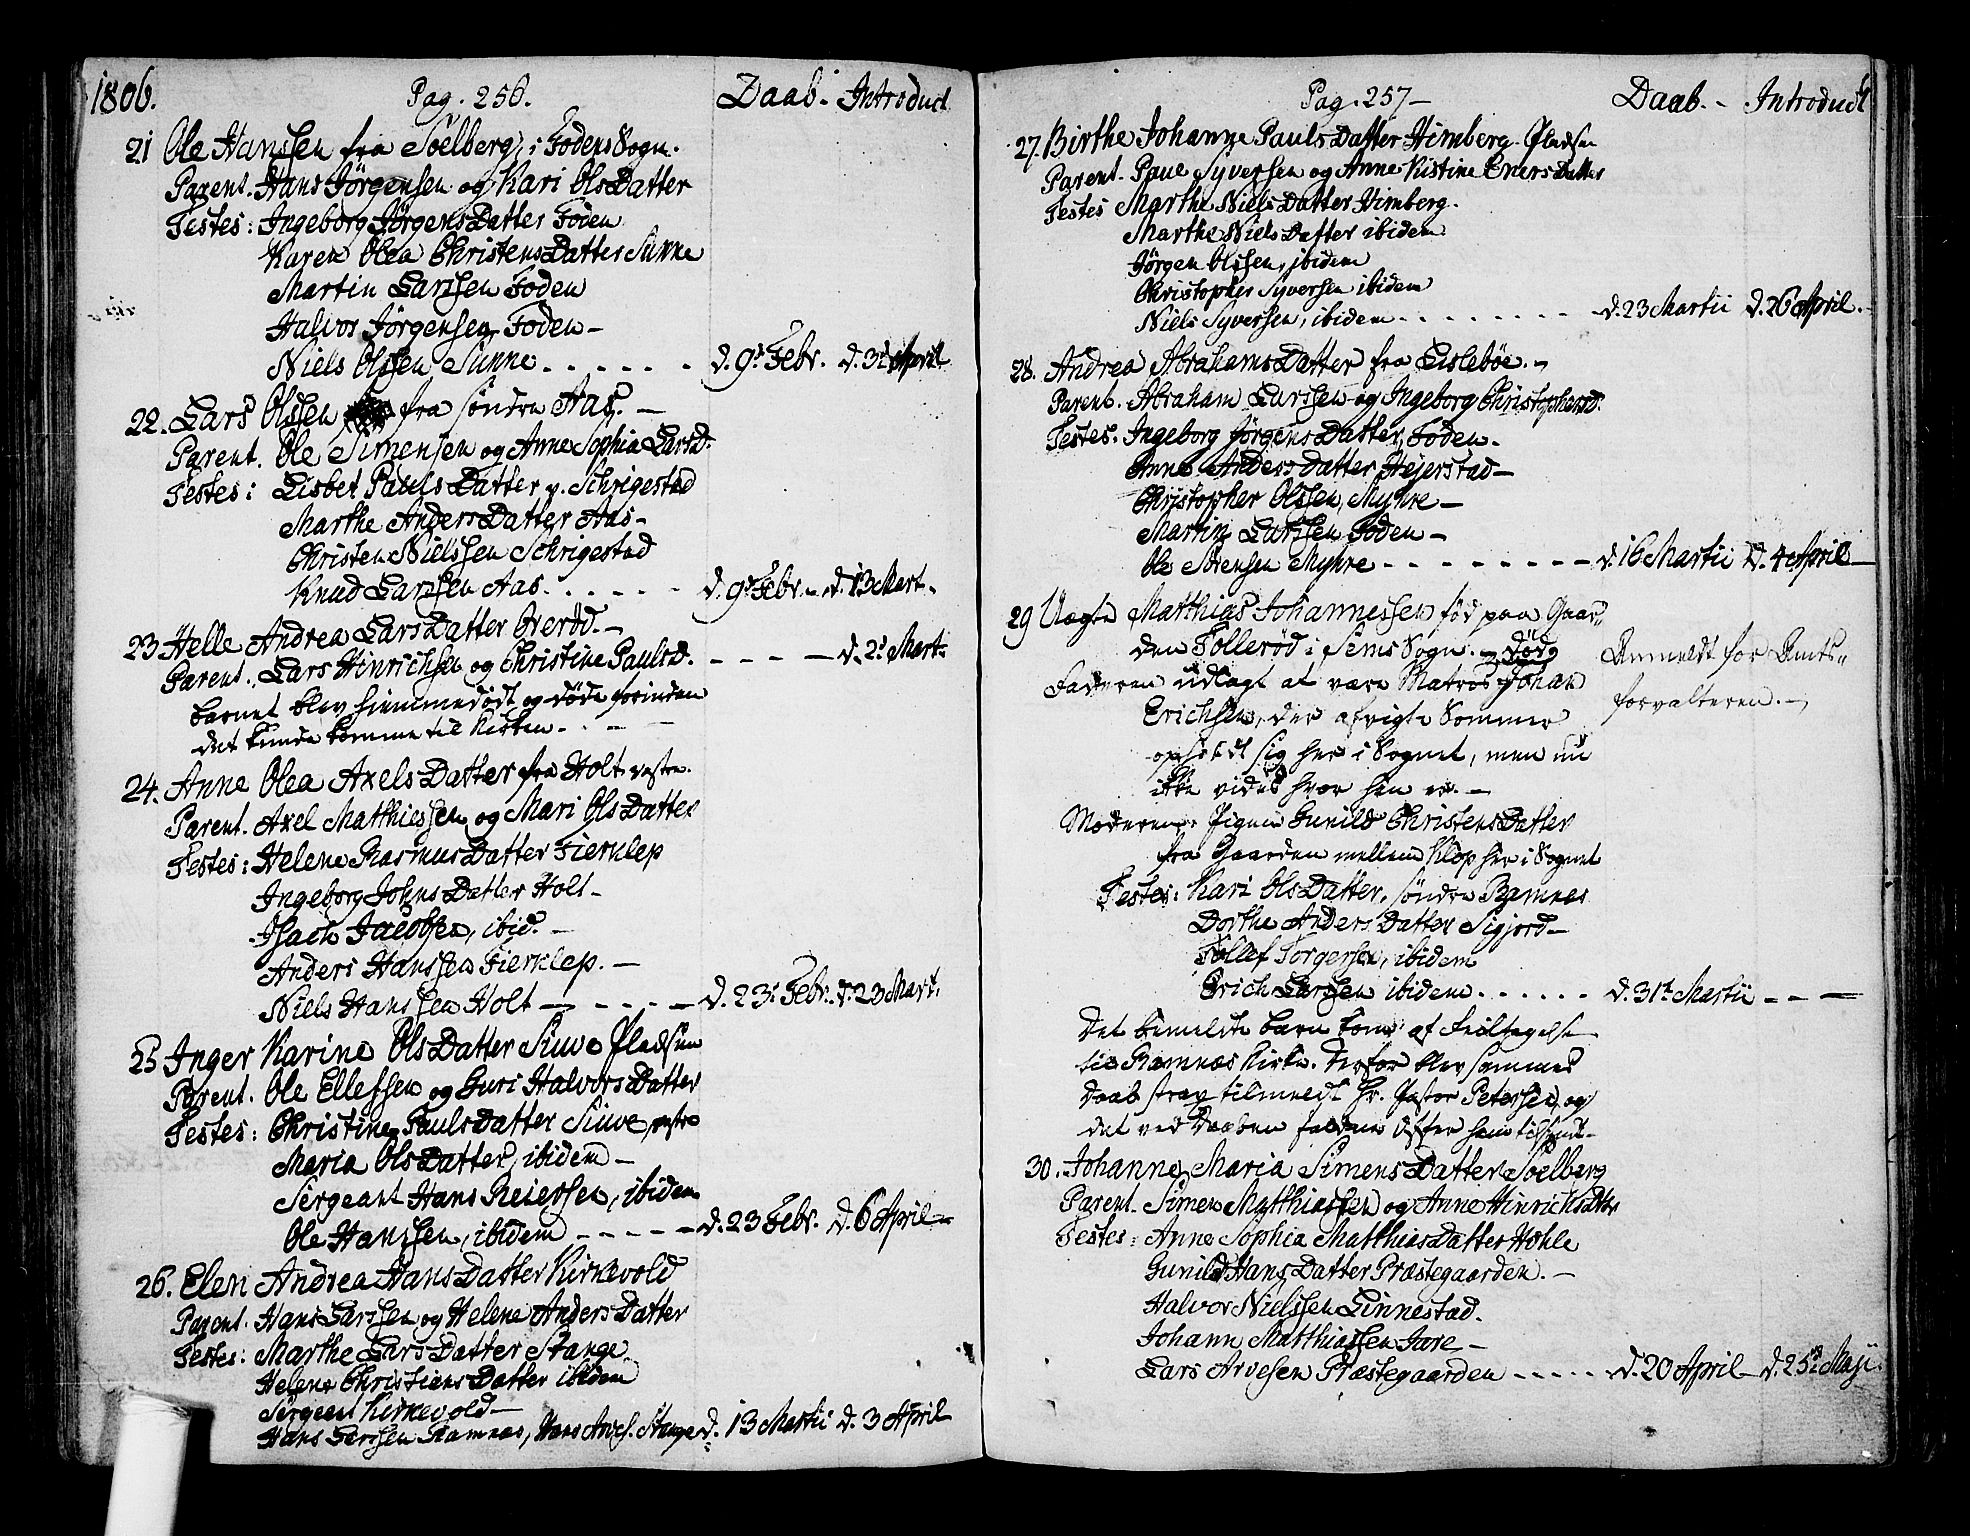 1806. Pag. 256. Daab - Introduct
21 Ole Hanssen fra Soelberg, i Foden Sogn.
Parent. Hans Jørgensen og Kari OlsDatter
Testes: Ingeborg JørgensDatter Foden
Karen Olea ChristensDatter Sunne
Martin Larssen Foden
Halvor Jørgensen, Foden -
Niels Olssen Sunne . . . . . . d. 9d Febr. d. 3d April
22. Lars Olssen fra søndre Aas. -
Parent. Ole Simensen og Anne Sophia Larsd.
Testes: Lisbet PaulsDatter v. Schrigestad
Marthe AndersDatter Aas -
Christen Nielssen Schrigestad
Knud Larssen Aas . . . . . d. 9d Febr. - d. 13 Mart.
23 Helle Andrea LarsDatter Overød. -
Parent. Lars Hinrichsen og Christine Paulsd. - - - - d. 2d Mart.
barnet blev hiemmedøbt og døde forinden
det kunde komme til Kirken - . - -
24. Anne Olea AxelsDatter fra Holt vestre.
Parent. Axel Matthiessen og Mari OlsDatter
Testes: Helene RasmusDatter Fierklep
Ingeborg JohnsDatter Holt -
Isach Jacobsen, ibid. -
Anders Hanssen Fierklep. -
Niels Hanssen Holt - - - - - d. 23d Febr. d. 23 Mart.
25 Inger Karine OlsDatter Siuve Pladsen
Parent. Ole Ellefsen og Guri HalvorsDatter
Testes: Christine PaulsDatter Siuve, vestre
Maria OlsDatter, ibidem -
Sergeant Hans Reiersen, ibidem
Ole Hanssen, ibidem - - - - - d. 23 Febr. d. 6 April -
26. Elen Andrea HansDatter Kirkevold
Parent. Hans Larssen og Helene AndersDatter
Testes: Marthe LarsDatter Stange
Helene ChristiensDatter ibidem
Sergeant Kirkevold -
Hans Larssen Ramnæs, Hans Andr. Stange d. 13 Martii d. 3 April
Pag. 257 - Daab. - Introduct
27. Birthe Johanne PaulsDatter Himberg Pladsen
Parent. Paul Syversen og Anne Kistine EnersDatter
Testes Marthe NielsDatter Himberg.
Marthe NielsDatter ibidem
Jørgen Olssen, ibidem
Christopher Syversen ibidem
Niels Syversen, ibidem . . . . . . . d. 23 Martii d. 26 April.
28. Andrea AbrahamsDatter fra Lislebøe. -
Parent. Abraham Larssen og Ingeborg Christophersd.
Testes. Ingeborg JørgensDatter, Foden.
Anne AndersDatter Hejerstad -
Christopher Olssen, Myhre -
Martin Larssen Foden -
Ole Sørensen Myhre - - - - - - - d. 16 Martii d. 4 April -
29 Uægte Matthias Johannessen, fød paa Gaar-
den Tollerød i Sems Sogn. - død
Anmeldt for Amts-
Faderen udlagt at være Matros Johan
forvalteren. -
Erichsen, der afvigte Sommer
opholdt sig her i Sognet, men nu
ikke vides hvor hen er. -
Moderen Pigen Gunild ChristensDatter
fra Gaarden mellem Klop her i Sognet
Testes: Kari OlsDatter, søndre Ramnæs
Dorthe AndersDatter Sigjord -
Tollef Torgersen, ibidem
Erich Larssen ibidem . . . . . . d. 31te Martii - - -
Det bemeldte barn kom af Feiltagelse
til Ramnæs Kirke. Derfor blev sammes
Daab strax tilmeldt Hr. Pastor Petersen, og
det ved Daaben faldne Offer ham tilsendt.
30. Johanne Maria SimensDatter Soelberg
Parent. Simen Matthiassen og Anne HinrichsDatter
Testes: Anne Sophia MatthiasDatter Hohle
Gunild HansDatter Præstegaarden. -
Halvor Nielssen Linnestad.
Johann Matthiassen Jare -
Lars Arvesen Præstegaarden - - - - - d. 20 April - d. 25de Maji.